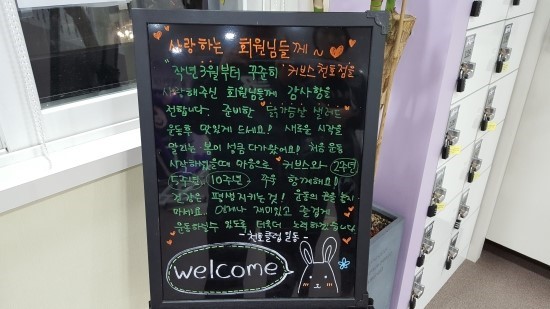 사랑하는 회원님들께~
"작년 3월부터 꾸준히 '커브스 천호점'을
사랑해주신 회원님들께 감사함을
전합니다. 준비한 닭가슴살 샐러드
운동후 맛있게 드세요! 새로운 시작을
알리는 봄이 성큼 다가왔어요! 처음 운동
시작하셨을때 마음으로 커브스와 2주년
5주년.. 10주년~ 쭈욱 함께해요!
건강은 평생 지키는 것! 운동의 끈을 놓지
마세요.. 언제나 재미있고 즐겁게
운동하실수 있도록 더욱더 노력하겠습니다
- 천호클럽 일동 -
welcome